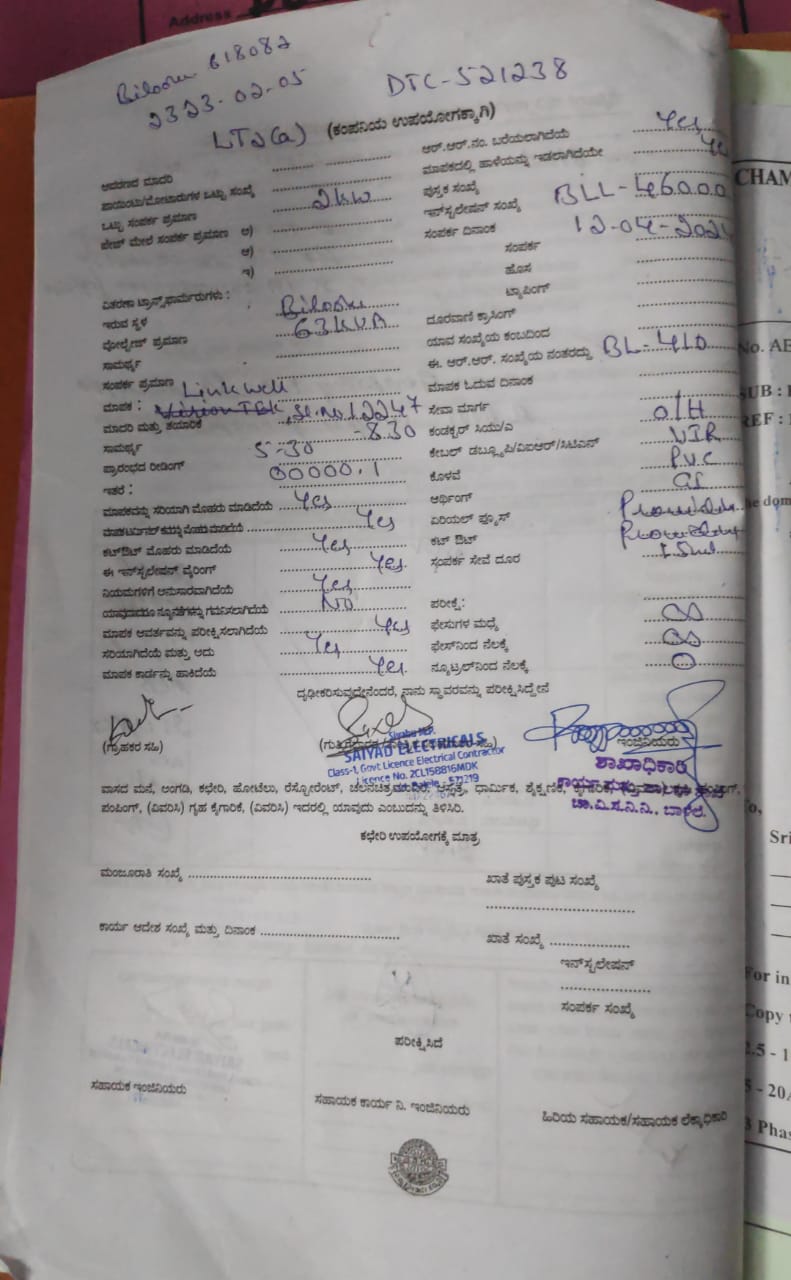 Address
618082
2323-02-05
DTC-521238
LT2(a) (ಕಂಪನಿಯ ಉಪಯೋಗಕ್ಕಾಗಿ)
ಆವರಣದ ಮಾದರಿ ........ ಆರ್.ಆರ್.ನಂ. ಬರೆಯಲಾಗಿದೆಯೆ Yes
ಪಾಯಿಂಟು/ಮೋಟಾರುಗಳ ಒಟ್ಟು ಸಂಖ್ಯೆ ........ ಮಾಪಕದಲ್ಲಿ ಹಾಳೆಯನ್ನು ಇಡಲಾಗಿದೆಯೇ
ಒಟ್ಟು ಸಂಪರ್ಕ ಪ್ರಮಾಣ 2kw ಪುಸ್ತಕ ಸಂಖ್ಯೆ
ಪೇಜ್ ಮೇಲೆ ಸಂಪರ್ಕ ಪ್ರಮಾಣ ಅ) ........ ಇನ್‌ಸ್ಟಲೇಷನ್ ಸಂಖ್ಯೆ BLL-46000
ಆ) ........ ಸಂಪರ್ಕ ದಿನಾಂಕ 12-04-202
ಇ) ........ ಸಂಪರ್ಕ
ಹೊಸ
ವಿತರಣಾ ಟ್ರಾನ್ಸ್‌ಫಾರ್ಮರುಗಳು : ಟ್ಯಾಪಿಂಗ್
ಇರುವ ಸ್ಥಳ
ವೋಲ್ಟೇಜ್ ಪ್ರಮಾಣ 63kVA ದೂರವಾಣಿ ಕ್ರಾಸಿಂಗ್
ಸಾಮರ್ಥ್ಯ ........ ಯಾವ ಸಂಖ್ಯೆಯ ಕಂಬದಿಂದ
ಸಂಪರ್ಕ ಪ್ರಮಾಣ ........ ಈ. ಆರ್.ಆರ್. ಸಂಖ್ಯೆಯ ನಂತರದ್ದು BL-410
ಮಾಪಕ : Linkwell ಮಾಪಕ ಓದುವ ದಿನಾಂಕ
ಮಾದರಿ ಮತ್ತು ತಯಾರಿಕೆ Sl.No.12247 ಸೇವಾ ಮಾರ್ಗ O/H
ಸಾಮರ್ಥ್ಯ 5-30 -830 ಕಂಡಕ್ಟರ್ ಸಿಯು/ಎ VIR
ಪ್ರಾರಂಭದ ರೀಡಿಂಗ್ 00000.1 ಕೇಬಲ್ ಡಬ್ಲ್ಯೂಪಿ/ವಿಐಆರ್/ಸಿಟಿಎಸ್ PVC
ಇತರೆ : ಕೊಳವೆ GI
ಮಾಪಕವನ್ನು ಸರಿಯಾಗಿ ಮೊಹರು ಮಾಡಿದೆಯೆ Yes ಆರ್ಥಿಂಗ್
ಮಾಪಕ ಟರ್ಮಿನಲ್ ಕವರನ್ನು ಮೊಹರು ಮಾಡಿದೆಯೆ Yes ಏರಿಯಲ್ ಫ್ಯೂಸ್
ಕಟ್‌ಔಟ್ ಮೊಹರು ಮಾಡಿದೆಯೆ Yes ಕಟ್ ಔಟ್
ಈ ಇನ್‌ಸ್ಟಲೇಷನ್ ವೈರಿಂಗ್ Yes ಸಂಪರ್ಕ ಸೇವೆ ದೂರ
ನಿಯಮಗಳಿಗೆ ಅನುಸಾರವಾಗಿದೆಯೆ Yes
ಯಾವುದಾದರೂ ನ್ಯೂನತೆಗಳನ್ನು ಗಮನಿಸಲಾಗಿದೆಯೆ No ಪರೀಕ್ಷೆ:
ಮಾಪಕ ಆವರ್ತವನ್ನು ಪರೀಕ್ಷಿಸಲಾಗಿದೆಯೆ Yes ಫೇಸುಗಳ ಮಧ್ಯೆ ∞
ಸರಿಯಾಗಿದೆಯೆ ಮತ್ತು ಅದು Yes ಫೇಸ್‌ನಿಂದ ನೆಲಕ್ಕೆ ∞
ಮಾಪಕ ಕಾರ್ಡನ್ನು ಹಾಕಿದೆಯೆ Yes ನ್ಯೂಟ್ರಲ್‌ನಿಂದ ನೆಲಕ್ಕೆ 0
ದೃಢೀಕರಿಸುವುದೇನೆಂದರೆ, ನಾನು ಸ್ಥಾವರವನ್ನು ಪರೀಕ್ಷಿಸಿದ್ದೇನೆ
(ಗ್ರಾಹಕರ ಸಹಿ) ಇಂಜಿನಿಯರು
SAIYAD ELECTRICALS
Class-1, Govt Licence Electrical Contractor
Licence No. 2CL158816MDK
571219
ಶಾಖಾಧಿಕಾರಿ
ಚಾ.ವಿ.ಸ.ನಿ.ನಿ., ಬಾಳೆಲೆ.
ವಾಸದ ಮನೆ, ಅಂಗಡಿ, ಕಛೇರಿ, ಹೋಟೆಲು, ರೆಸ್ಟೋರೆಂಟ್, ಚಲನಚಿತ್ರಮಂದಿರ, ಆಸ್ಪತ್ರೆ, ಧಾರ್ಮಿಕ, ಶೈಕ್ಷಣಿಕ, ಕೈಗಾರಿಕೆ,
ಪಂಪಿಂಗ್, (ವಿವರಿಸಿ) ಗೃಹ ಕೈಗಾರಿಕೆ, (ವಿವರಿಸಿ) ಇದರಲ್ಲಿ ಯಾವುದು ಎಂಬುದನ್ನು ತಿಳಿಸಿರಿ.
ಕಛೇರಿ ಉಪಯೋಗಕ್ಕೆ ಮಾತ್ರ
ಮಂಜೂರಾತಿ ಸಂಖ್ಯೆ ........ ಖಾತೆ ಪುಸ್ತಕ ಪುಟ ಸಂಖ್ಯೆ
ಕಾರ್ಯ ಆದೇಶ ಸಂಖ್ಯೆ ಮತ್ತು ದಿನಾಂಕ ........ ಖಾತೆ ಸಂಖ್ಯೆ ........
ಇನ್‌ಸ್ಟಲೇಷನ್
ಸಂಪರ್ಕ ಸಂಖ್ಯೆ
ಪರೀಕ್ಷಿಸಿದೆ
ಸಹಾಯಕ ಇಂಜಿನಿಯರು ಸಹಾಯಕ ಕಾರ್ಯ ನಿ. ಇಂಜಿನಿಯರು ಹಿರಿಯ ಸಹಾಯಕ/ಸಹಾಯಕ ಲೆಕ್ಕಾಧಿಕಾರಿ
CHAM
No. AE
SUB :
REF :
Sri
For in
Copy
2.5 - 1
5 - 20A
3 Phas